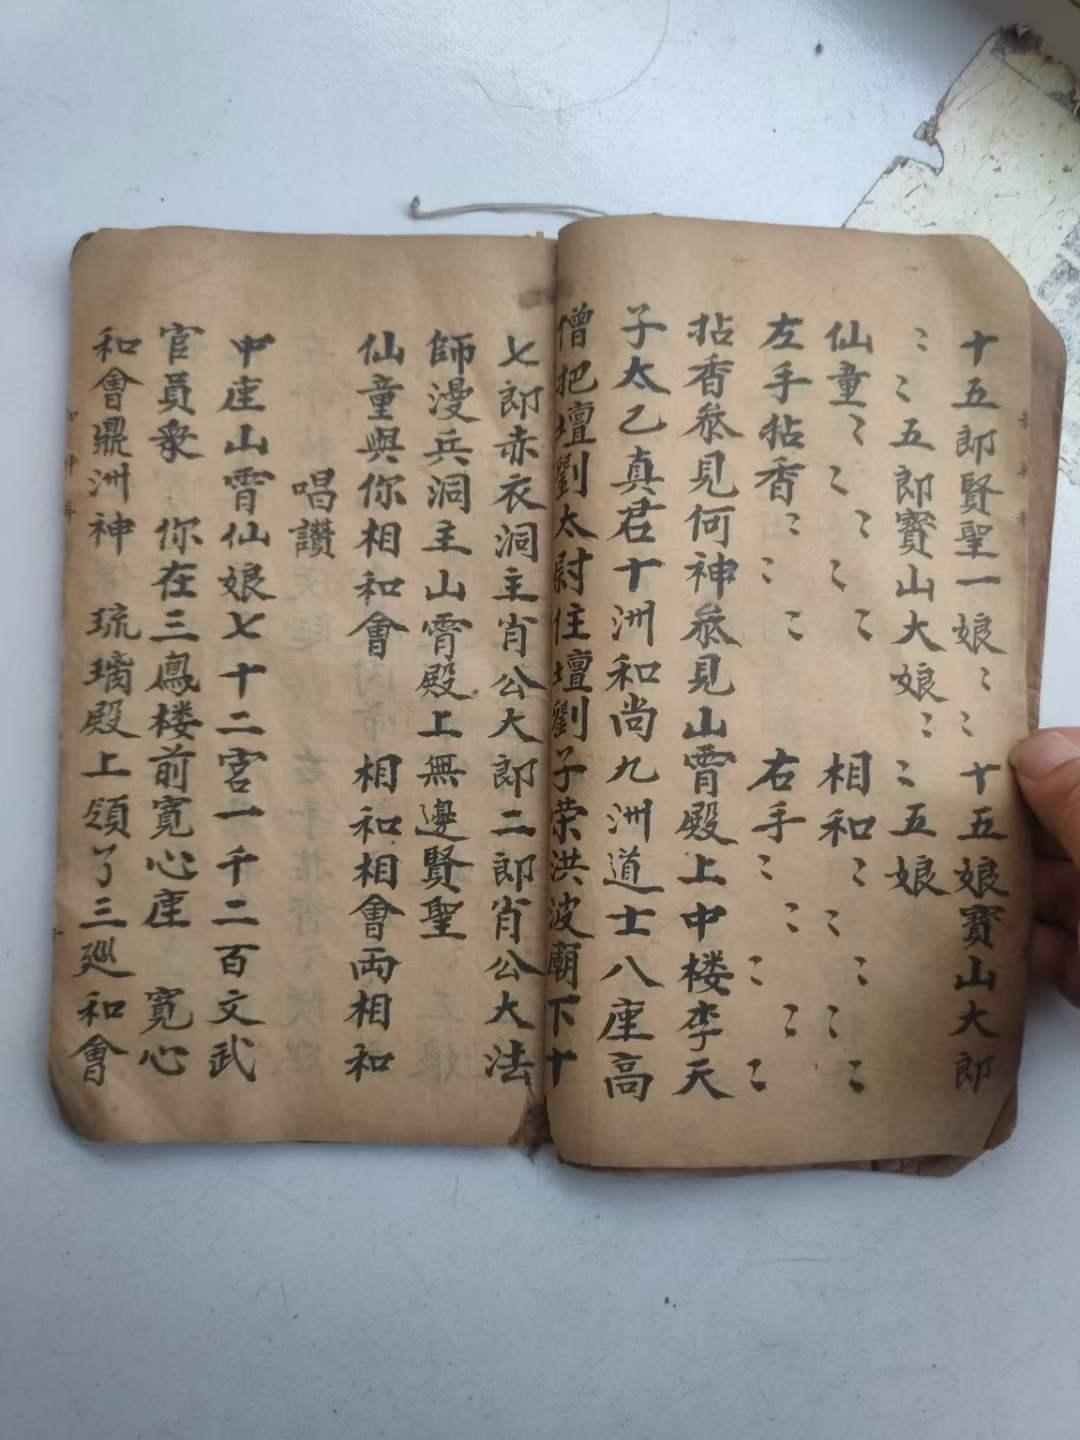 十五郎賢聖一娘〻〻十五娘寳山大郎
〻〻五郎寳山大娘〻〻五娘
仙童〻〻〻〻〻 相和〻〻〻〻〻
左手拈香〻〻〻 右手〻〻〻〻〻
拈香叅見何神叅見山霄殿上中楼李天
子太乙真君十洲和尚九洲道士八座高
僧把壇劉太尉住壇劉子荣洪波廟下十
七郎赤衣洞主肖公大郎二郎肖公大法
師漫兵洞主山霄殿上無邊賢聖
仙童與你相和會 相和相會両相和
唱讚
中座山霄仙娘七十二宮一千二百文武
官員衆 你在三鳳楼前寛心座 寛心
和會鼎洲神 琉璃殿上領了三廵和會